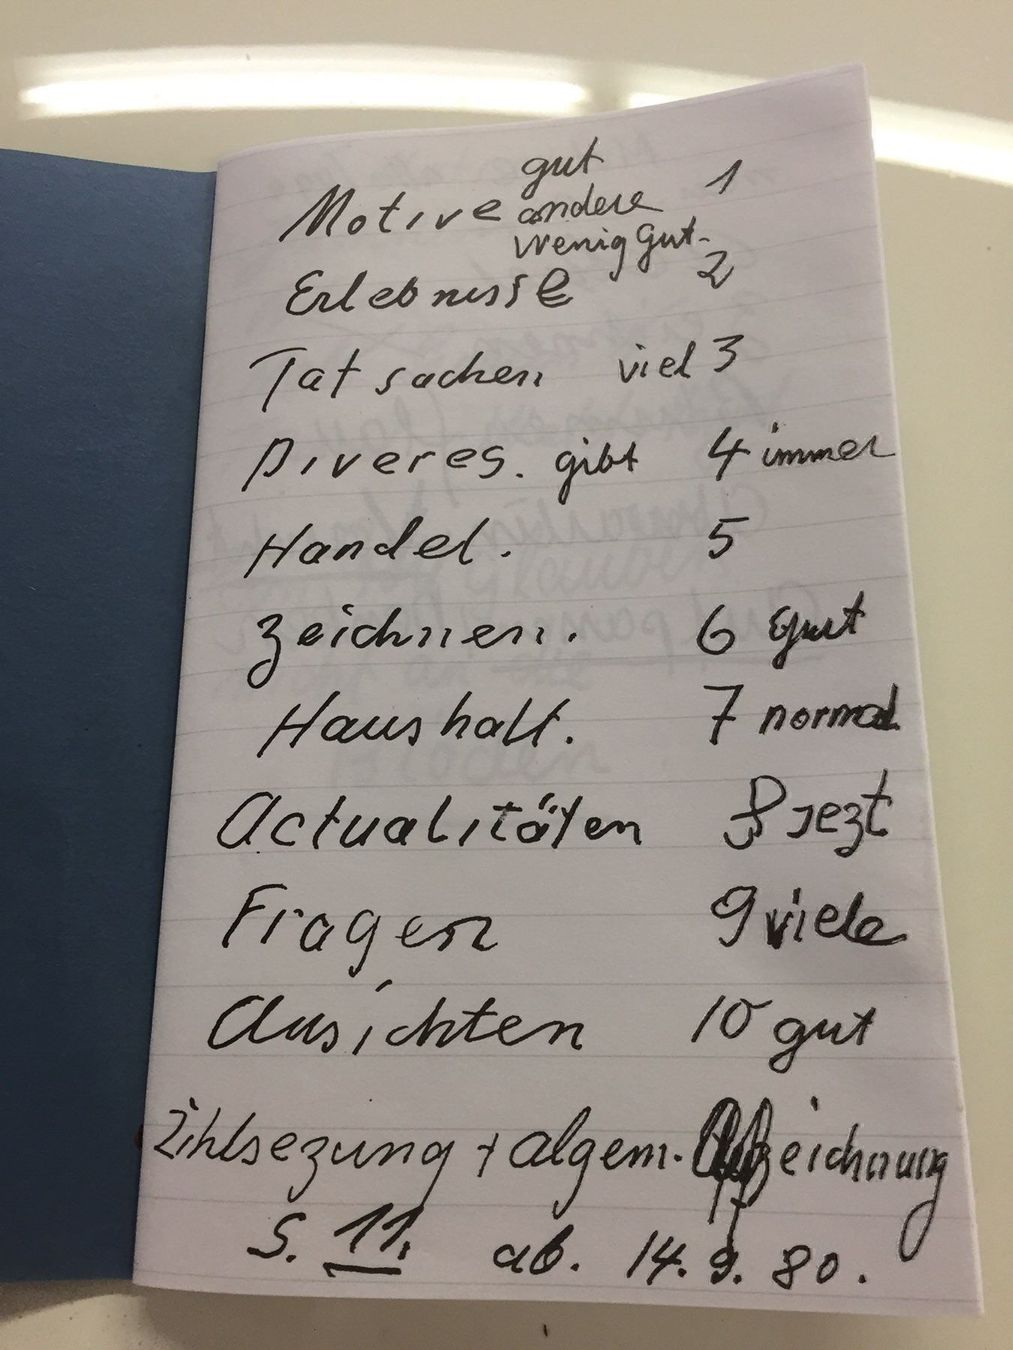 gut
Motive andere 1
wenig gut.
Erlebnisse 2
Tatsachen viel 3
Diveres. gibt 4 immer
Handel. 5
Zeichnen. 6 gut
Haushalt. 7 normal
Actualitäten 8 jezt
Fragen 9 viele
Ansichten 10 gut
Zihlsezung + algem. Aufzeichnung
S. 11. ab. 14. 9. 80.